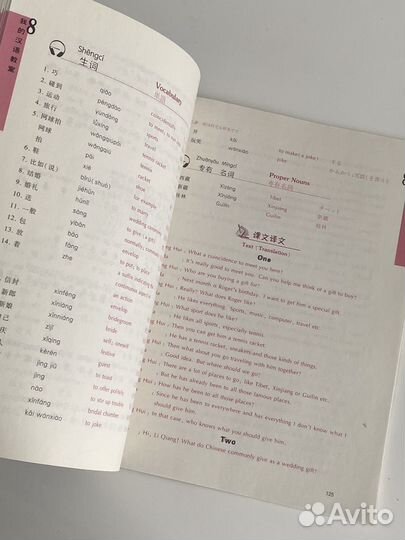 8
我的汉语教室
Shēngcí
生词 Vocabulary
1. 巧 qiǎo coincidentally
2. 碰到 pèngdào to meet, to run into
3. 运动 yùndòng sports
4. 旅行 lǚxíng travel
5. 网球拍 wǎngqiúpāi tennis racket
网球 wǎngqiú tennis
拍 pāi racket
6. 鞋 xié shoe
7. 比如(说) bǐrú(shuō) for example
8. 结婚 jiéhūn to marry
9. 婚礼 hūnlǐ wedding
10. 送 sòng to give (a gift)
11. 一般 yìbān normally
12. 包 bāo to wrap
13. 放 fàng to put, to place
14. 着 zhe a suffix indicating
an action
信封 xìnfēng envelop
新郎 xīnláng bridegroom
新娘 xīnniáng bride
自己 zìjǐ self, oneself
庆 xǐqìng festive
kèrén guest
jìng jiǔ to offer politely
jiǔ
nào to stir up trouble
xīnfáng bridal chamber
kāi wánxiào to joke
开 kāi to make (a joke)
玩笑 wánxiào joke
Zhuānyǒu Míngcí
专有 名词 Proper Nouns
西藏 Xīzàng Tibet
新疆 Xīnjiāng Xinjiang
桂林 Guìlín Guilin
课文译文
Text (Translation)
One
Hui, What a coincidence to meet you here!
, It's really good to meet you. Can you help me think of a gift to buy?
Hui, Who are you buying a gift for?
, Next month is Roger's birthday. I want to get him a special gift.
Hui, Really? What does Roger like?
, He likes everything: Sports, music, computer, travel etc.
Hui, What sport does he like?
, He likes all sports, especially tennis.
Hui, Then you can get him a tennis racket.
, He has a tennis racket, sneakers and those kinds of things.
Hui, Then what about you go traveling with him together?
, Good idea. But where should we go?
Hui, There are a lot of places to go, like Tibet, Xinjiang or Guilin etc.
, But he has already been to all those famous places.
Hui, How has he been to all those places?
, Since he has been to everywhere and has everything I don't know what I
should give him.
Hui, In that case, who knows what you should give him.
Two
, Hi, Li Qiang! What do Chinese commonly give as a wedding gift?
125
Avito